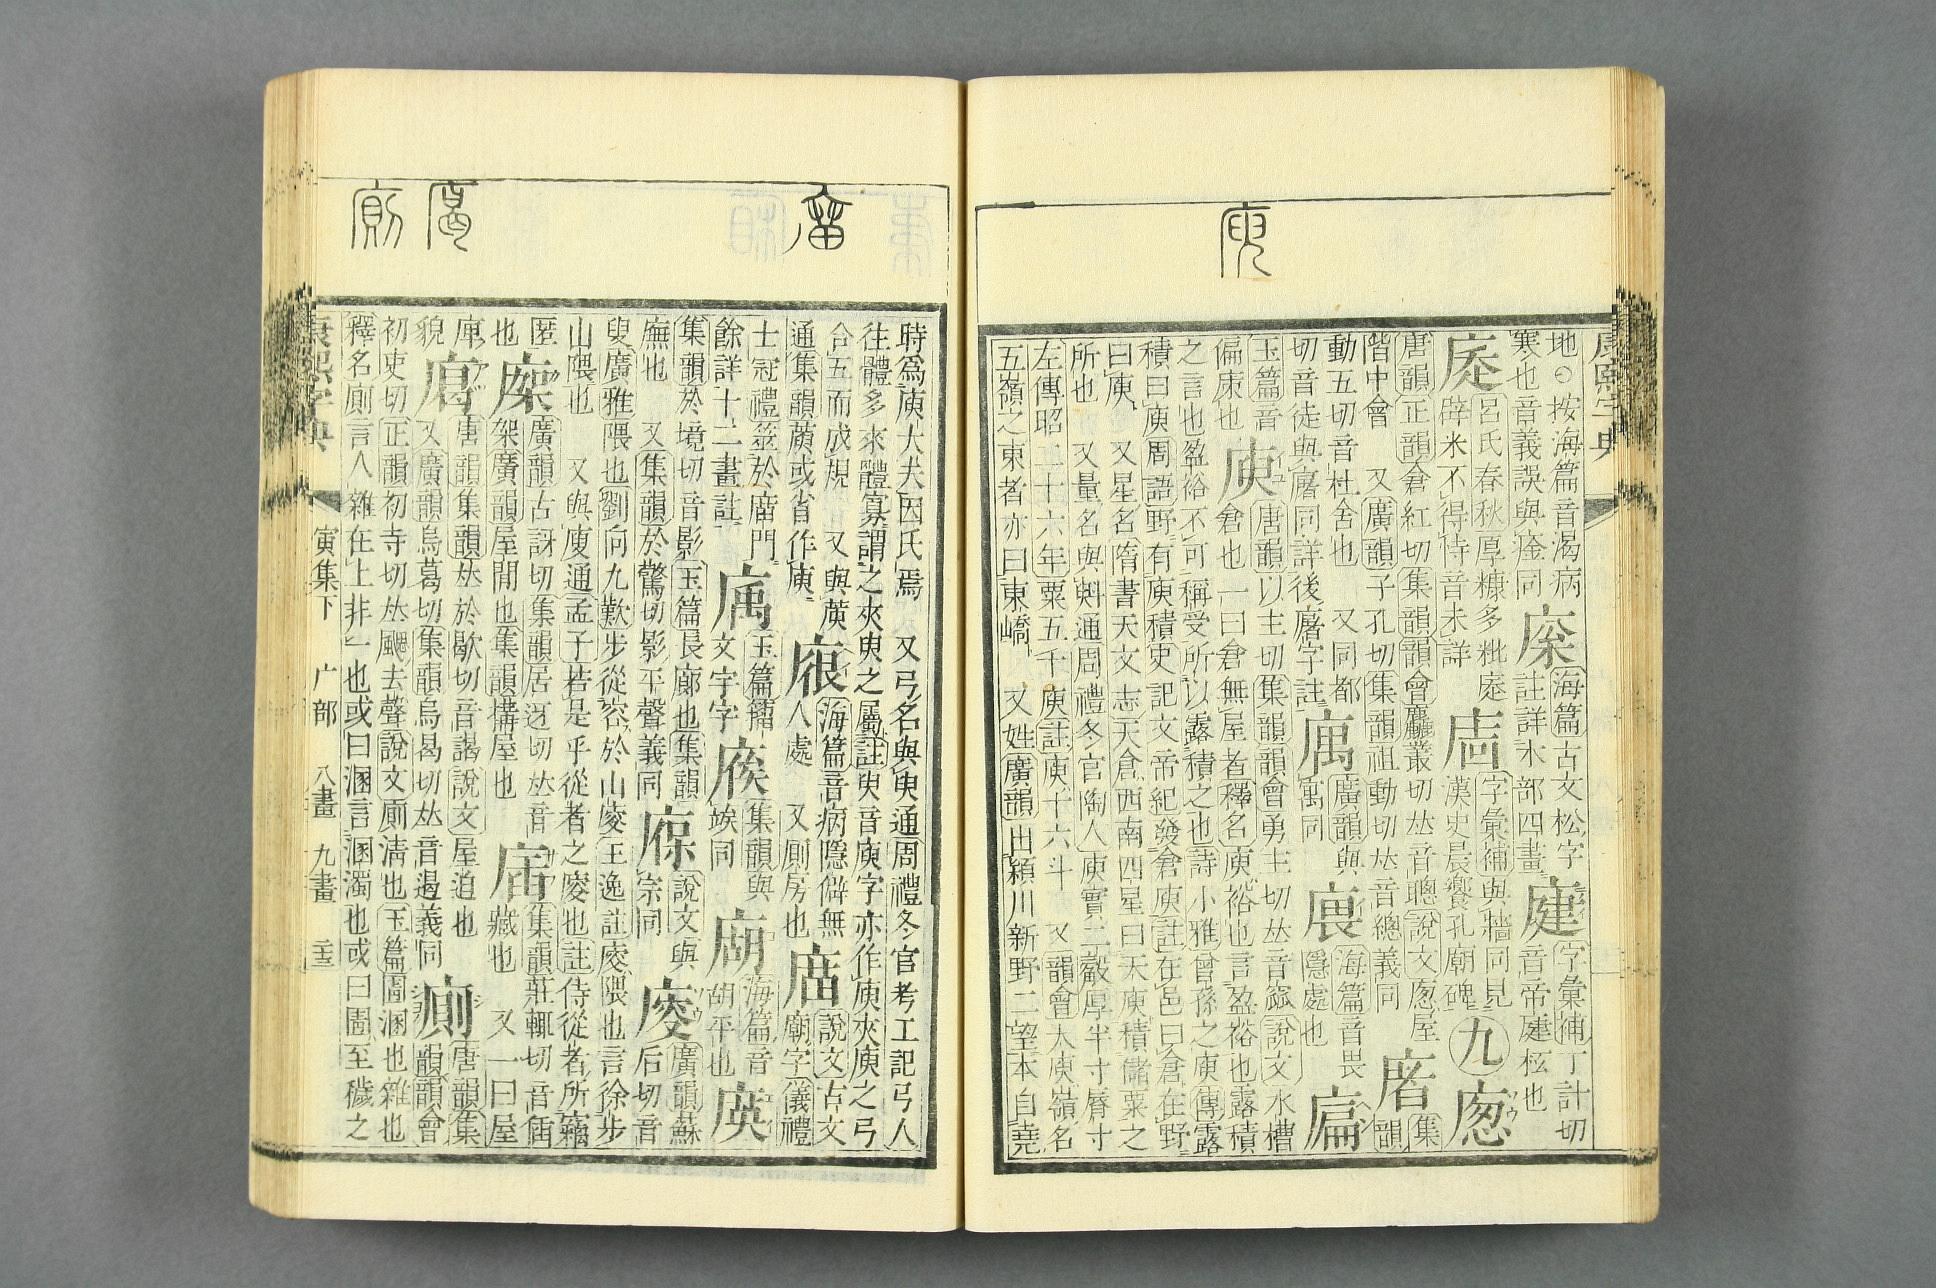 康熙字典
地○按海篇音渴病
寒也音義誤與
同
海篇古文松字
註詳木部四畫
字彙補丁計切
音帝
也
呂氏春秋厚糠多粃
辟米不得恃音未詳
字彙補與牆同見
漢史晨饗孔廟碑
九
唐韻正韻倉紅切集韻韻會麤叢切𠀤音聰說文屋
階中會 又廣韻子孔切集韻祖動切𠀤音總義同
廜
集
韻
動五切音杜舍也 又同都
切音徒與廜同詳後廜字註
廣韻與
寓同
海篇音畏
隱處也
玉篇音
偏庌也
庾
唐韻以主切集韻韻會勇主切𠀤音窳說文水槽
倉也一曰倉無屋者釋名庾裕也言盈裕也露積
之言也盈裕不可稱受所以露積之也詩小雅曾孫之庾傳露
積曰庾周語野有庾積史記文帝紀發倉庾註在邑曰倉在野
曰庾 又星名隋書天文志天倉西南四星曰天庾積儲粟之
所也 又量名與㪷通周禮冬官陶人庾實二觳厚半寸脣寸
左傳昭二十六年粟五千庾註庾十六斗 又韻會大庾嶺名
五嶺之東者亦曰東嶠 又姓廣韻出潁川新野二望本自堯
時爲庾大夫因氏焉 又弓名與臾通周禮冬官考工記弓人
往體多來體寡謂之夾臾之屬註臾音庾字亦作庾夾庾之弓
合五而成規 又與㢏
通集韻或省作庾
海篇音病隱僻無
人處 又厠房也
說文古文
廟字儀禮
士冠禮筮於庿門
餘詳十二畫註
玉篇籀
文宇字
集韻與
竢同
海篇音
胡平也
集韻於境切音影玉篇長廊也集韻
廡也 又集韻於驚切影平聲義同
說文與
宗同
廋
廣韻蘇
后切音
叟廣雅隈也劉向九歎步從容於山廋王逸註廋隈也言徐步
山隈也 又與廀通孟子若是乎從者之廋也註侍從者所竊
匿
也
廣韻古訝切集韻居迓切𠀤音
架廣韻屋閒也集韻構屋也
集韻莊輒切音
藏也 又一曰屋
庘
貌
唐韻集韻𠀤於歇切音謁說文屋迫也
又廣韻烏葛切集韻烏曷切𠀤音遏義同
廁
唐韻集
韻韻會
初吏切正韻初寺切𠀤颸去聲說文廁清也玉篇圊溷也雜也
釋名廁言人雜在上非一也或曰溷言溷濁也或曰圊至穢之
康熙字典 寅集下 广部 八畫 九畫